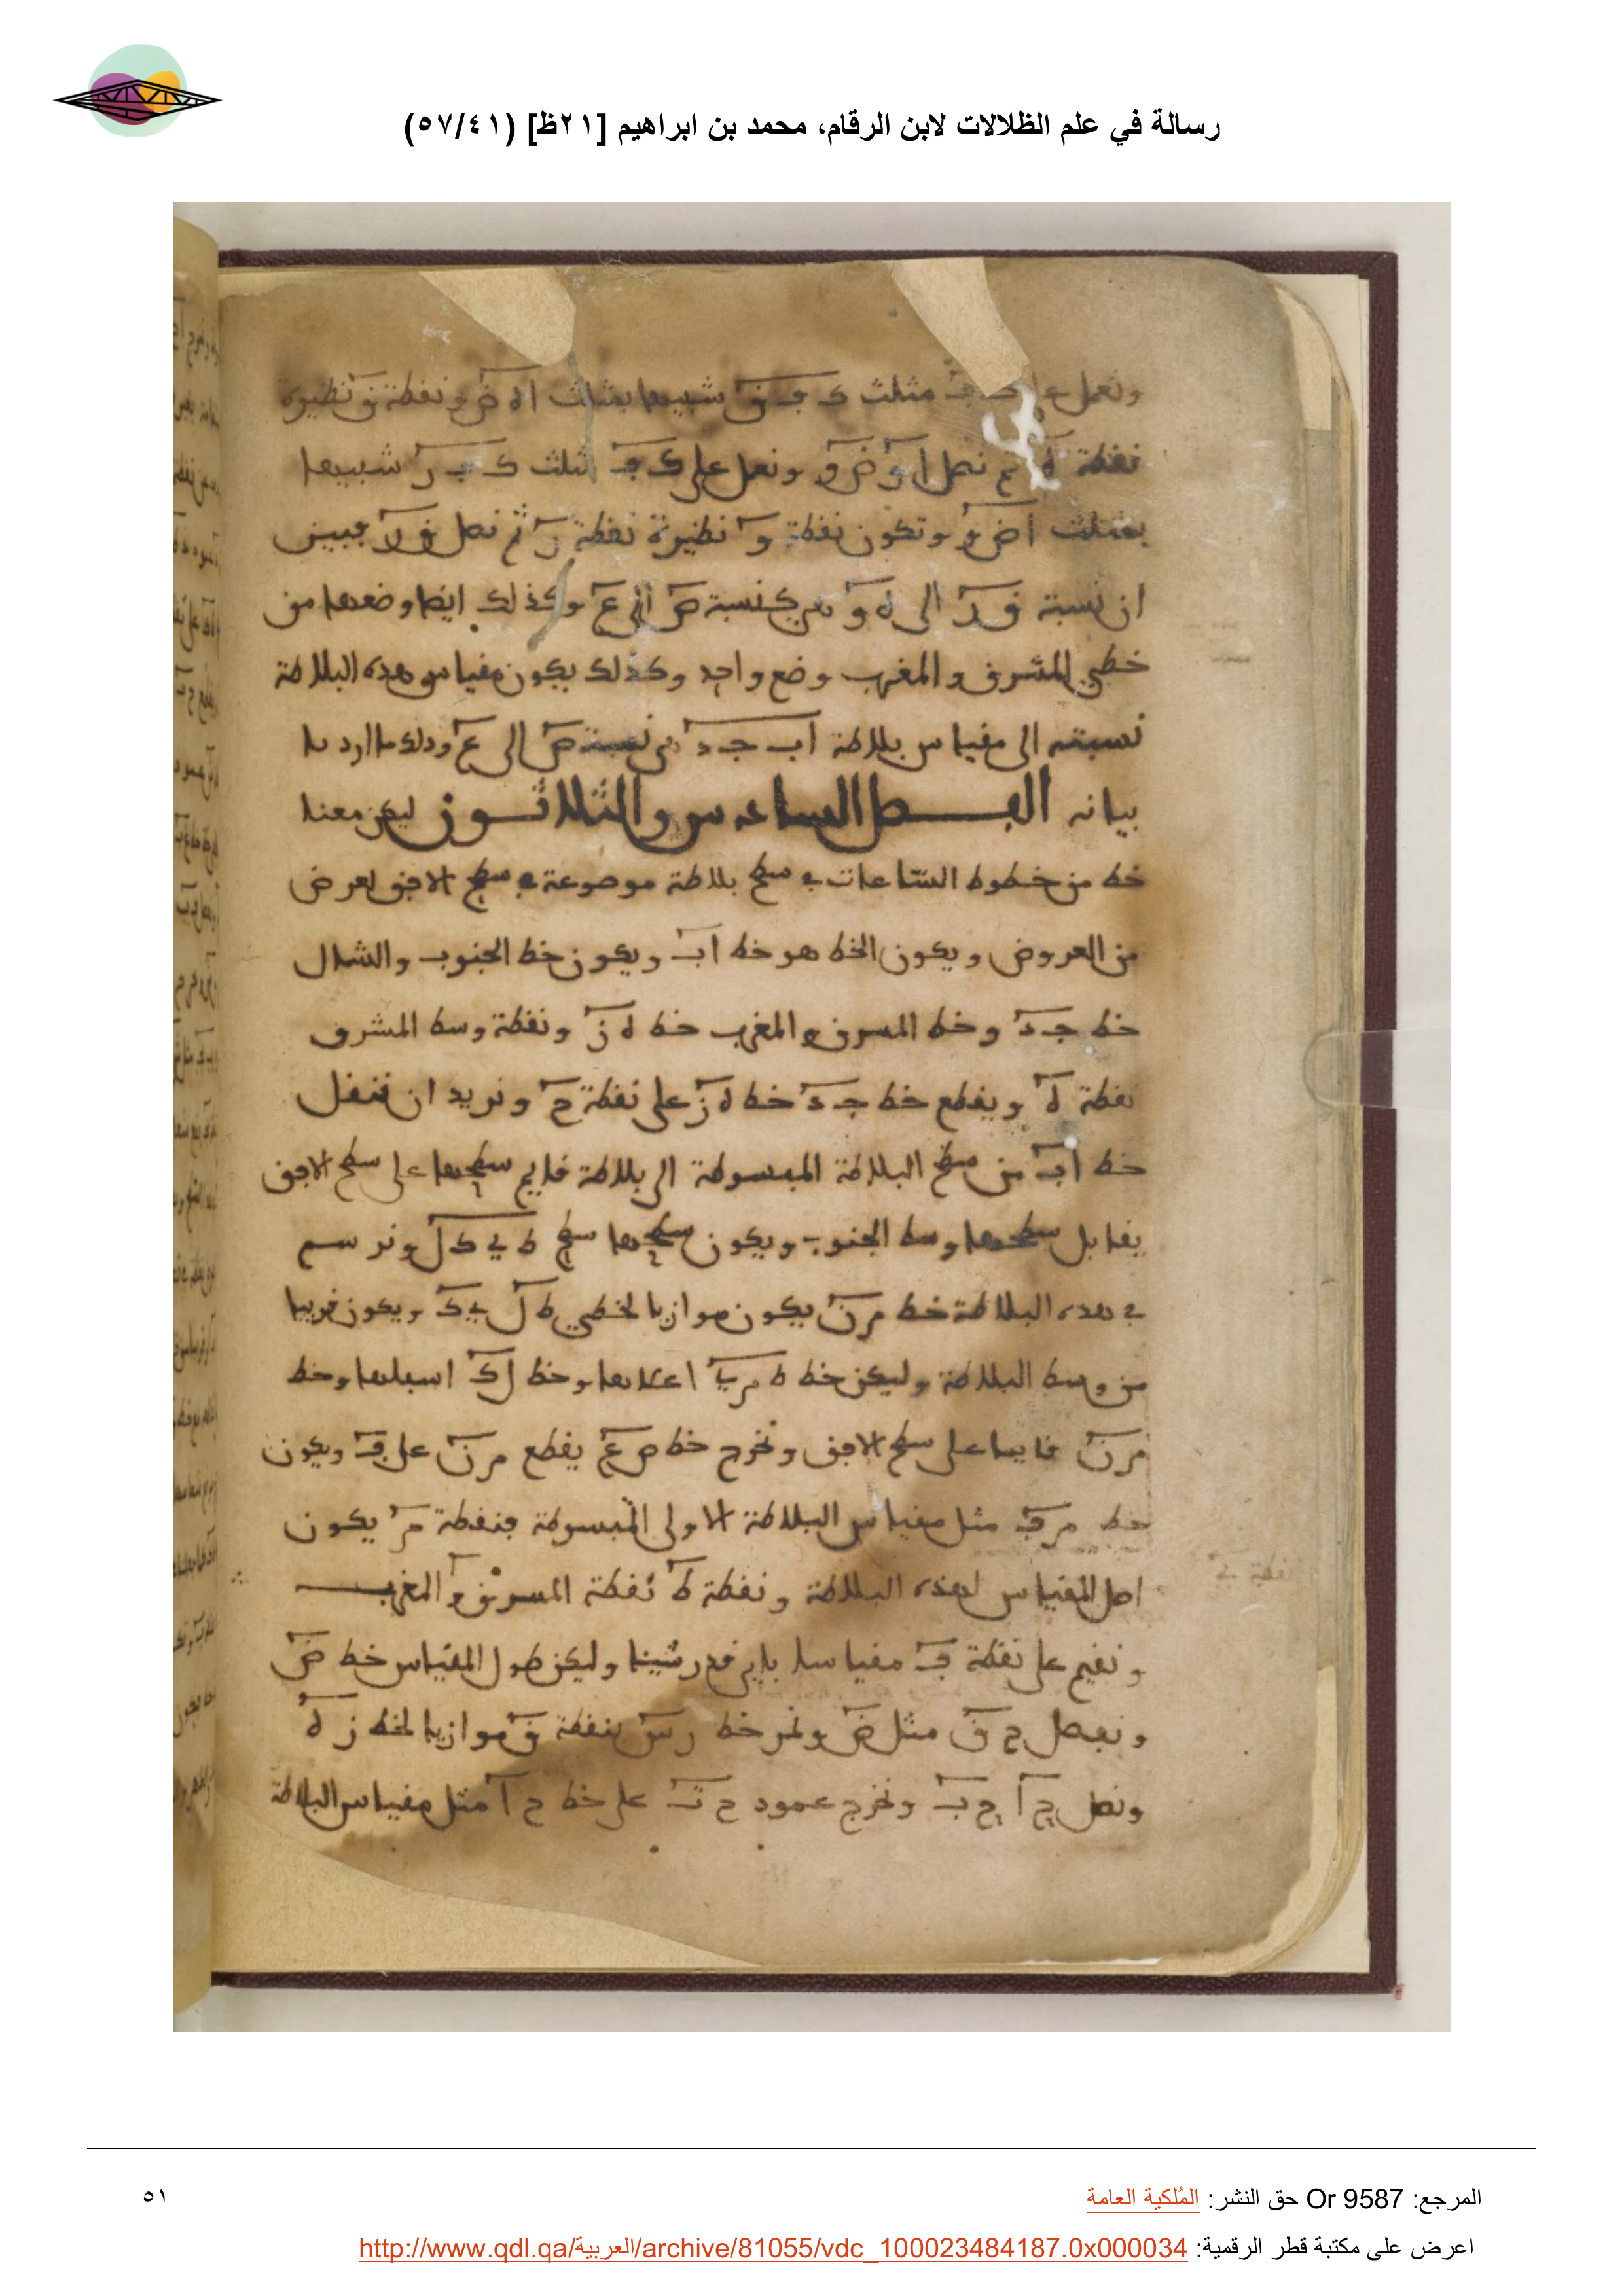 رسالة في علم الظلالات لابن الرقام، محمد بن ابراهيم [٢١ظ] (٥٧/٤١)
ونعمل على مثلث ك ف ق شبيها بمثلث ا ه ض ونقطة ق نظيرة
نقطة ه ثم نصل ا و ض و ونعمل على ك ف مثلث ك ف ر شبيها
بمثلث ا ض و وتكون نقطة و نظيرة نقطة ر ثم نصل ق ر فبين
ان نسبة ق ر الى ه و هي كنسبة ص الى ع وكذلك ايضا وضعها من
خطي المشرق والمغرب وضع واحد وكذلك يكون مقياس هذه البلاطة
نسبته الى مقياس بلاطة ا ب ج د هي نسبة ص الى ع وذلك ما اردنا
بيانه الفصل السادس والثلاثون ليكن معنا
خط من خطوط الساعات في سطح بلاطة موضوعة في سطح الافق لعرض
من العروض ويكون الخط هو خط ا ب ويكون خط الجنوب والشمال
خط ج د وخط المشرق والمغرب خط ه ز ونقطة وسط المشرق
نقطة ه ويقطع خط ج د خط ه ز على نقطة ح ونريد ان ننقل
خط ا ب من سطح البلاطة المبسوطة الى بلاطة قايم سطحها على سطح الافق
يقابل سطحها وسط الجنوب ويكون سطحها سطح ط ي ك ل ونرسم
في هذه البلاطة خط م ن يكون موازيا لخطي ط ل ي ك ويكون قريبا
من وسط البلاطة وليكن خط ط م ي اعلاها وخط ل ك اسفلها وخط
م ن قايما على سطح الافق ونخرج خط ص ع يقطع م ن على ف ويكون
خط م ف مثل مقياس البلاطة الاولى المبسوطة فنقطة م يكون
اصل المقياس لهذه البلاطة ونقطة ط نقطة المشرق والمغرب
ونقيم على نقطة ف مقياسا باي قدر شينا وليكن طول المقياس خط ض
ونفصل ح ق مثل ض ونمر خط ر س بنقطة ق موازيا لخط ز ه
ونصل ح ا ح ب ونخرج عمود ح ت على خط ح ا مثل مقياس البلاطة
المرجع: Or 9587 حق النشر: المُلكية العامة
٥١
اعرض على مكتبة قطر الرقمية: http://www.qdl.qa/العربية/archive/81055/vdc_100023484187.0x000034